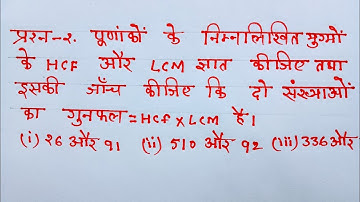 प्रश्न-2. पूर्णांकों के निम्नलिखित युग्मों
के HCF और LCM ज्ञात कीजिए तथा
इसकी जाँच कीजिए कि दो संख्याओं
का गुनफल = HCF x LCM है।
(i) 26 और 91 (ii) 510 और 92 (iii) 336 और